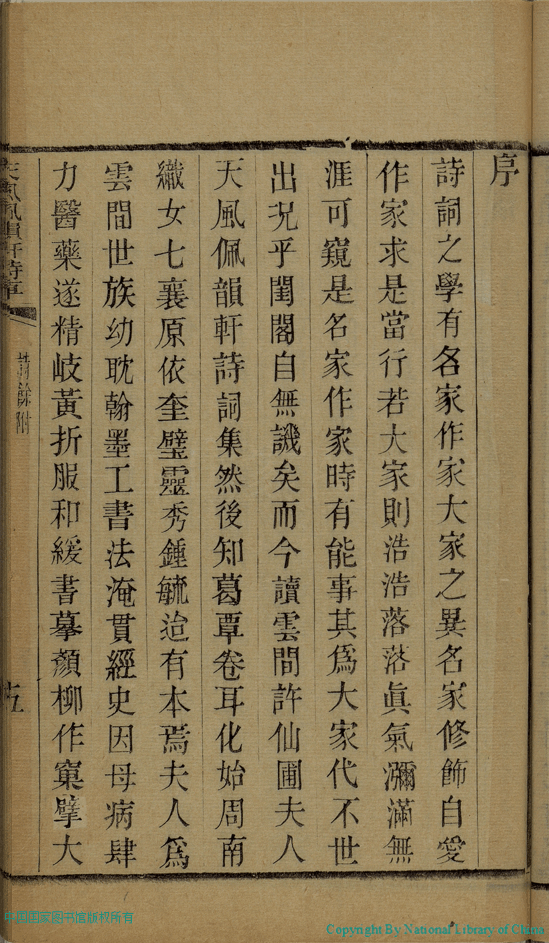 序
詩詞之學有各家作家大家之異名家修飾自愛
作家求是當行若大家則浩浩落落眞氣瀰滿無
涯可窺是名家作家時有能事其爲大家代不世
出況乎閨閣自無譏矣而今讀雲間許仙圃夫人
天風佩韻軒詩詞集然後知葛覃卷耳化始周南
織女七襄原依奎璧靈秀鍾毓迨有本焉夫人爲
雲間世族幼耽翰墨工書法淹貫經史因母病肆
力醫藥遂精岐黃折服和緩書摹顏柳作窠擘大
天風佩韻軒詩草
詩餘附
十五
中国国家图书馆版权所有
Copyright By National Library of China